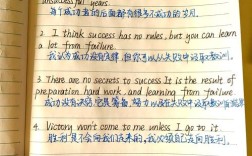 unsuccessful years.
每个成功者的后面都有很多不成功的岁月.
2. I think success has no rules, but you can learn
a lot from failure.
我认为成功没有定律,但你可以从失败中汲取教训.
3. There are no secrets to success It is the result of
preparation hard work, and learning from failure
成功没有决窍,它是筹备、努力以及在失败中汲取教训的结果
4. Victory won't come to me unless I go to it.
胜利是不会向我们走来的,我必须自己走向胜利.